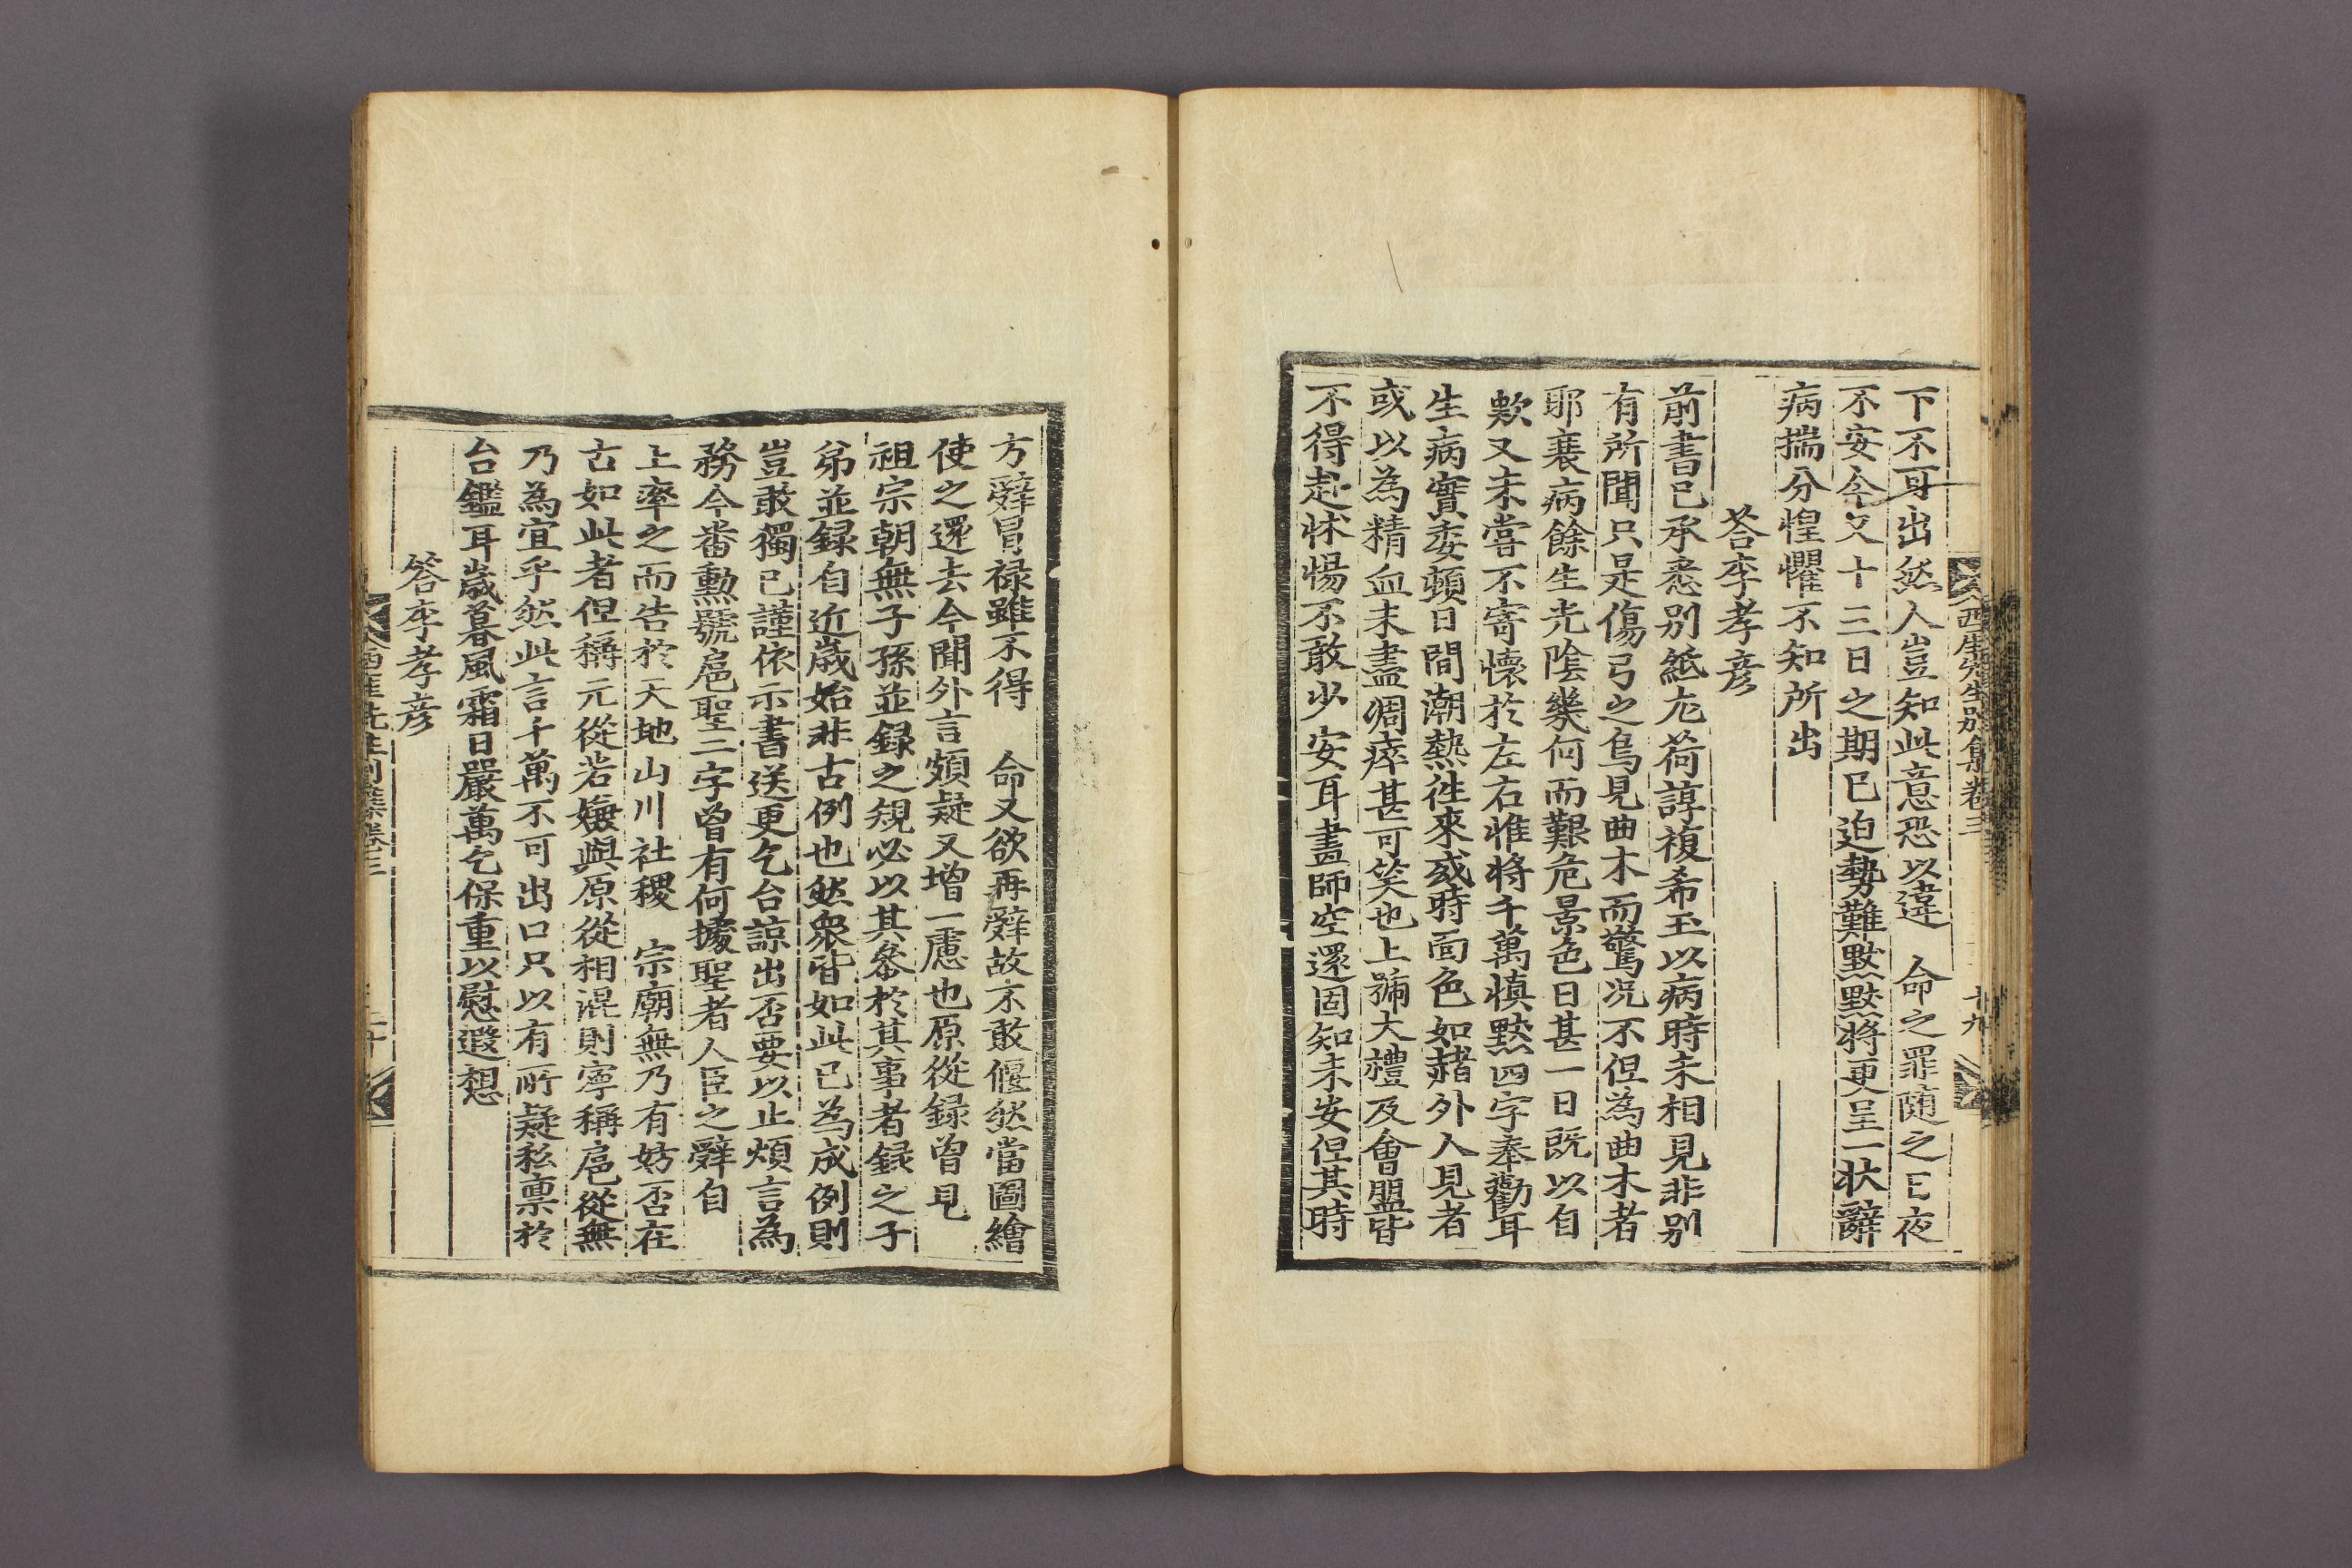 西厓先生別集卷三 十九
下不可出然人豈知此意恐以違 命之罪隨之日夜
不安今又十三日之期已迫勢難默默將更呈一狀辭
病揣分惶懼不知所出
答李孝彦
前書已承悉別紙尤荷諄複希玉以病時未相見非別
有所聞只是傷弓之鳥見曲木而驚況不但為曲木者
耶衰病餘生光陰幾何而艱危景色日甚一日既以自
歎又未嘗不寄懷於左右惟將千萬慎默四字奉勸耳
生病實委頓日間潮熱徃來或時面色如赭外人見者
或以為精血未盡凋瘁甚可笑也上號大禮及會盟皆
不得赴怵惕不敢少安耳畫師空還固知未安但其時
方辭冒祿雖不得 命又欲再辭故不敢偃然當圖繪
使之還去今聞外言頗疑又增一慮也原從錄曾見
祖宗朝無子孫並錄之規必以其參於其事者錄之子
弟並録自近歲始非古例也然衆皆如此已為成例則
豈敢獨已謹依示書送更乞台諒出否要以止煩言為
務今番勳號扈聖二字曾有何據聖者人臣之辭自
上率之而告於天地山川社稷 宗廟無乃有妨否在
古如此者但稱元從若嫌與原從相混則寧稱扈從無
乃為宜乎然此言千萬不可出口只以有所疑私稟於
台鑑耳歲暮風霜日嚴萬乞保重以慰遐想
答李孝彦
西厓先生別集卷三 二十